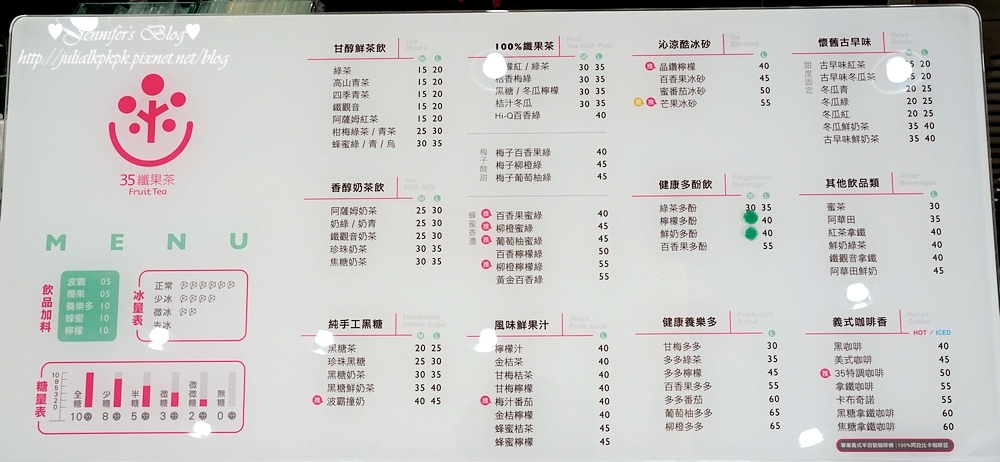 ♥Jennifer's Blog♥
http://julialkpkpk.pixnet.net/blog
35纖果茶
FruitTea
MENU
飲品加料
波霸 05
椰果 05
養樂多 10
蜂蜜 10
檸檬 10
冰量表
正常
少冰
微冰
去冰
糖量表
10 8 5 3 2 0
全糖 少糖 半糖 微糖 微微糖 無糖
10分 8分 5分 3分 2分 0分
甘醇鮮茶飲 Tea Drinks
M L
綠茶 15 20
高山青茶 15 20
四季青茶 15 20
鐵觀音 15 20
阿薩姆紅茶 15 20
柑梅綠茶 / 青茶 25 30
蜂蜜綠 / 青 / 烏 30 35
香醇奶茶飲 Tea With Milk
M L
阿薩姆奶茶 25 30
奶綠 / 奶青 25 30
鐵觀音奶茶 25 30
珍珠奶茶 30 35
焦糖奶茶 30 35
純手工黑糖 Handmade brown sugar
M L
黑糖茶 20 25
珍珠黑糖 25 30
黑糖奶茶 30 35
黑糖鮮奶茶 35 40
推 波霸撞奶 40 45
100%纖果茶 Fruit Tea With Pulp
M L
檬紅 / 綠茶 30 35
桔香梅綠 30 35
黑糖 / 冬瓜檸檬 30 35
桔汁冬瓜 30 35
Hi-Q百香綠 40
梅子酸甜
梅子百香果綠 40
梅子柳橙綠 45
梅子葡萄柚綠 45
蜂蜜香濃
推 百香果蜜綠 40
推 柳橙蜜綠 45
推 葡萄柚蜜綠 45
百香檸檬綠 50
推 柳橙檸檬綠 55
黃金百香綠 55
風味鮮果汁 Fresh Fruit Juice
L
檸檬汁 40
金桔茶 40
甘梅桔茶 40
甘梅檸檬 40
推 梅汁番茄 40
金桔檸檬 40
蜂蜜桔茶 45
蜂蜜檸檬 45
沁涼酷冰砂 Ice Blended
L
推 晶鑽檸檬 40
百香果冰砂 45
蜜番茄冰砂 50
推 芒果冰砂 55
健康多酚飲 Polyphenol Beverage
M L
綠茶多酚 30 35
檸檬多酚 40
鮮奶多酚 40
百香果多酚 55
健康養樂多 Probiotic Drink
L
甘梅多多 30
多多綠茶 35
多多檸檬 45
百香果多多 55
多多番茄 60
葡萄柚多多 65
柳橙多多 65
懷舊古早味 Retro Drinks
M L
甜度固定
古早味紅茶 15 20
古早味冬瓜茶 15 20
冬瓜青 20 25
冬瓜綠 20 25
冬瓜紅 20 25
冬瓜鮮奶茶 35 40
古早味鮮奶茶 35 40
其他飲品類 Other Beverages
L
蜜茶 30
阿華田 35
紅茶拿鐵 40
鮮奶綠茶 40
鐵觀音拿鐵 40
阿華田鮮奶 45
義式咖啡香 Italian Coffee
HOT / ICED
黑咖啡 40
美式咖啡 45
推 35特調咖啡 50
拿鐵咖啡 55
卡布奇諾 55
黑糖拿鐵咖啡 60
焦糖拿鐵咖啡 60
專業義式半自動咖啡機｜100%阿拉比卡咖啡豆